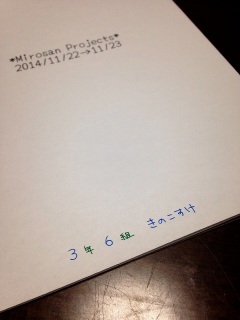 *Mirosan Projects*
2014/11/22→11/23
3年6組 きのこすけ